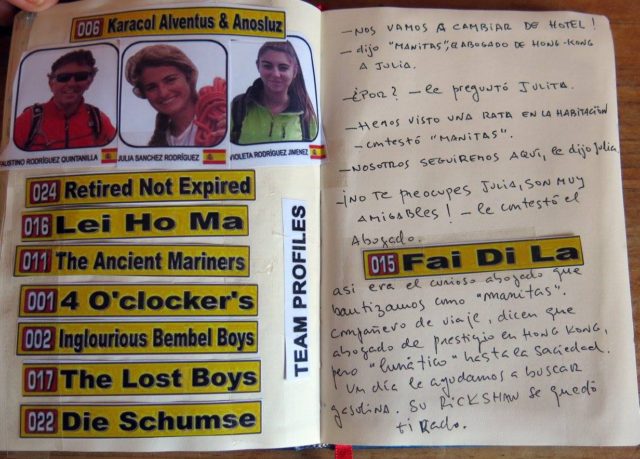 006 Karacol Alventus & Anosluz
FAUSTINO RODRÍGUEZ QUINTANILLA
JULIA SANCHEZ RODRÍGUEZ
VIOLETA RODRÍGUEZ JIMENEZ
024 Retired Not Expired
016 Lei Ho Ma
011 The Ancient Mariners
001 4 O'clocker's
002 Inglourious Bembel Boys
017 The Lost Boys
022 Die Schumse
TEAM PROFILES
—NOS VAMOS A CAMBIAR DE HOTEL!
— dijo "MANITAS", EL ABOGADO DE HONG-KONG
A JULIA.
—¿POR? — le preguntó JULITA.
—HEMOS VISTO UNA RATA EN LA HABITACIÓN
— contestó "MANITAS".
—NOSOTROS SEGUIREMOS AQUÍ, le dijo Julia.
—¡NO TE preocupes JULIA, SON MUY
AMIGABLES! — le contestó el
Abogado.
015 Fai Di La
así era el curioso abogado que
bautizamos como "manitas".
Compañero de viaje, dicen que
abogado de prestigio en HONG KONG,
pero "lunático" hasta la saciedad.
Un día le ayudamos a buscar
gasolina. Su RICKSHAW se quedó
tirado.